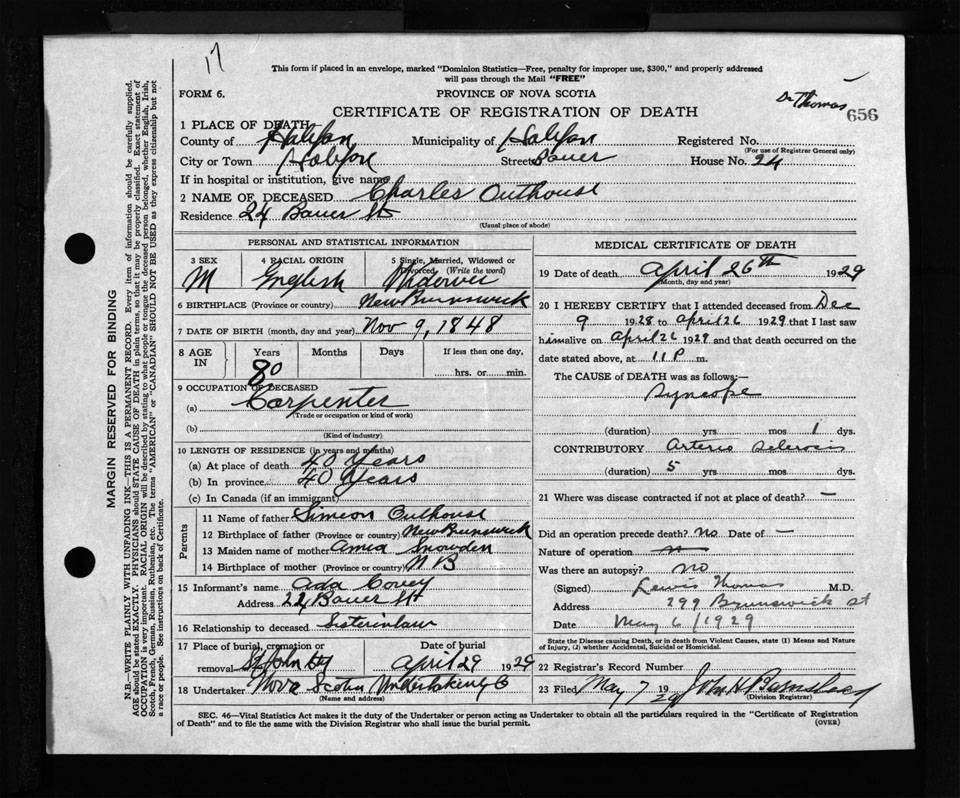 17
This form if placed in an envelope, marked "Dominion Statistics—Free, penalty for improper use, $300," and properly addressed
will pass through the Mail "FREE"
FORM 6. PROVINCE OF NOVA SCOTIA
Dr Thomas
CERTIFICATE OF REGISTRATION OF DEATH 656
1 PLACE OF DEATH
County of Halifax Municipality of Halifax Registered No.
(For use of Registrar General only)
City or Town Halifax Street Bauer House No. 24
If in hospital or institution, give name
2 NAME OF DECEASED Charles Outhouse
Residence 24 Bauer St
(Usual place of abode)
PERSONAL AND STATISTICAL INFORMATION
3 SEX 4 RACIAL ORIGIN 5 Single, Married, Widowed or
Divorced (Write the word)
M English Widower
6 BIRTHPLACE (Province or country) New Brunswick
7 DATE OF BIRTH (month, day and year) Nov 9, 1848
8 AGE IN Years Months Days If less than one day,
80 hrs. or min.
9 OCCUPATION OF DECEASED
(a) Carpenter
(Trade or occupation or kind of work)
(b)
(Kind of industry)
10 LENGTH OF RESIDENCE (in years and months)
(a) At place of death 40 Years
(b) In province 40 Years
(c) In Canada (if an immigrant)
Parents
11 Name of father Simeon Outhouse
12 Birthplace of father (Province or country) New Brunswick
13 Maiden name of mother Snowden
14 Birthplace of mother (Province or country) N B
15 Informant's name Ada Covey
Address 24 Bauer St
16 Relationship to deceased Sister in law
17 Place of burial, cremation or Date of burial
removal St John April 29 1929
18 Undertaker Nova Scotia Undertaking Co
(Name and address)
MEDICAL CERTIFICATE OF DEATH
19 Date of death April 26th 1929
(Month, day and year)
20 I HEREBY CERTIFY that I attended deceased from Dec
9 1928 to April 26 1929 that I last saw
him alive on April 26 1929 and that death occurred on the
date stated above, at 11 P m.
The CAUSE of DEATH was as follows:—
Syncope
(duration) yrs mos 1 dys.
CONTRIBUTORY Arterio sclerosis
(duration) 5 yrs mos dys.
21 Where was disease contracted if not at place of death? —
Did an operation precede death? no Date of —
Nature of operation
Was there an autopsy? no
(Signed) Lewis Thomas M.D.
Address 299 Brunswick st
Date May 6/1929
State the Disease causing Death, or in death from Violent Causes, state (1) Means and Nature
of Injury, (2) whether Accidental, Suicidal or Homicidal.
22 Registrar's Record Number
23 Filed May 7 1929 John H
(Division Registrar)
SEC. 46—Vital Statistics Act makes it the duty of the Undertaker or person acting as Undertaker to obtain all the particulars required in the "Certificate of Registration
of Death" and to file the same with the Division Registrar who shall issue the burial permit. (OVER)
MARGIN RESERVED FOR BINDING
N.B.—WRITE PLAINLY WITH UNFADING INK—THIS IS A PERMANENT RECORD. Every item of information should be carefully supplied.
AGE should be stated EXACTLY. PHYSICIANS should STATE CAUSE OF DEATH in plain terms, so that it may be properly classified. Exact statement of
OCCUPATION is very important. RACIAL ORIGIN will be described by stating to what people or tongue the deceased person belonged, whether English, Irish,
Scotch, French, German, Russian, Ruthenian, etc. The terms "AMERICAN" or "CANADIAN" SHOULD NOT BE USED as they express citizenship but not
a race or people. See instructions on back of Certificate.